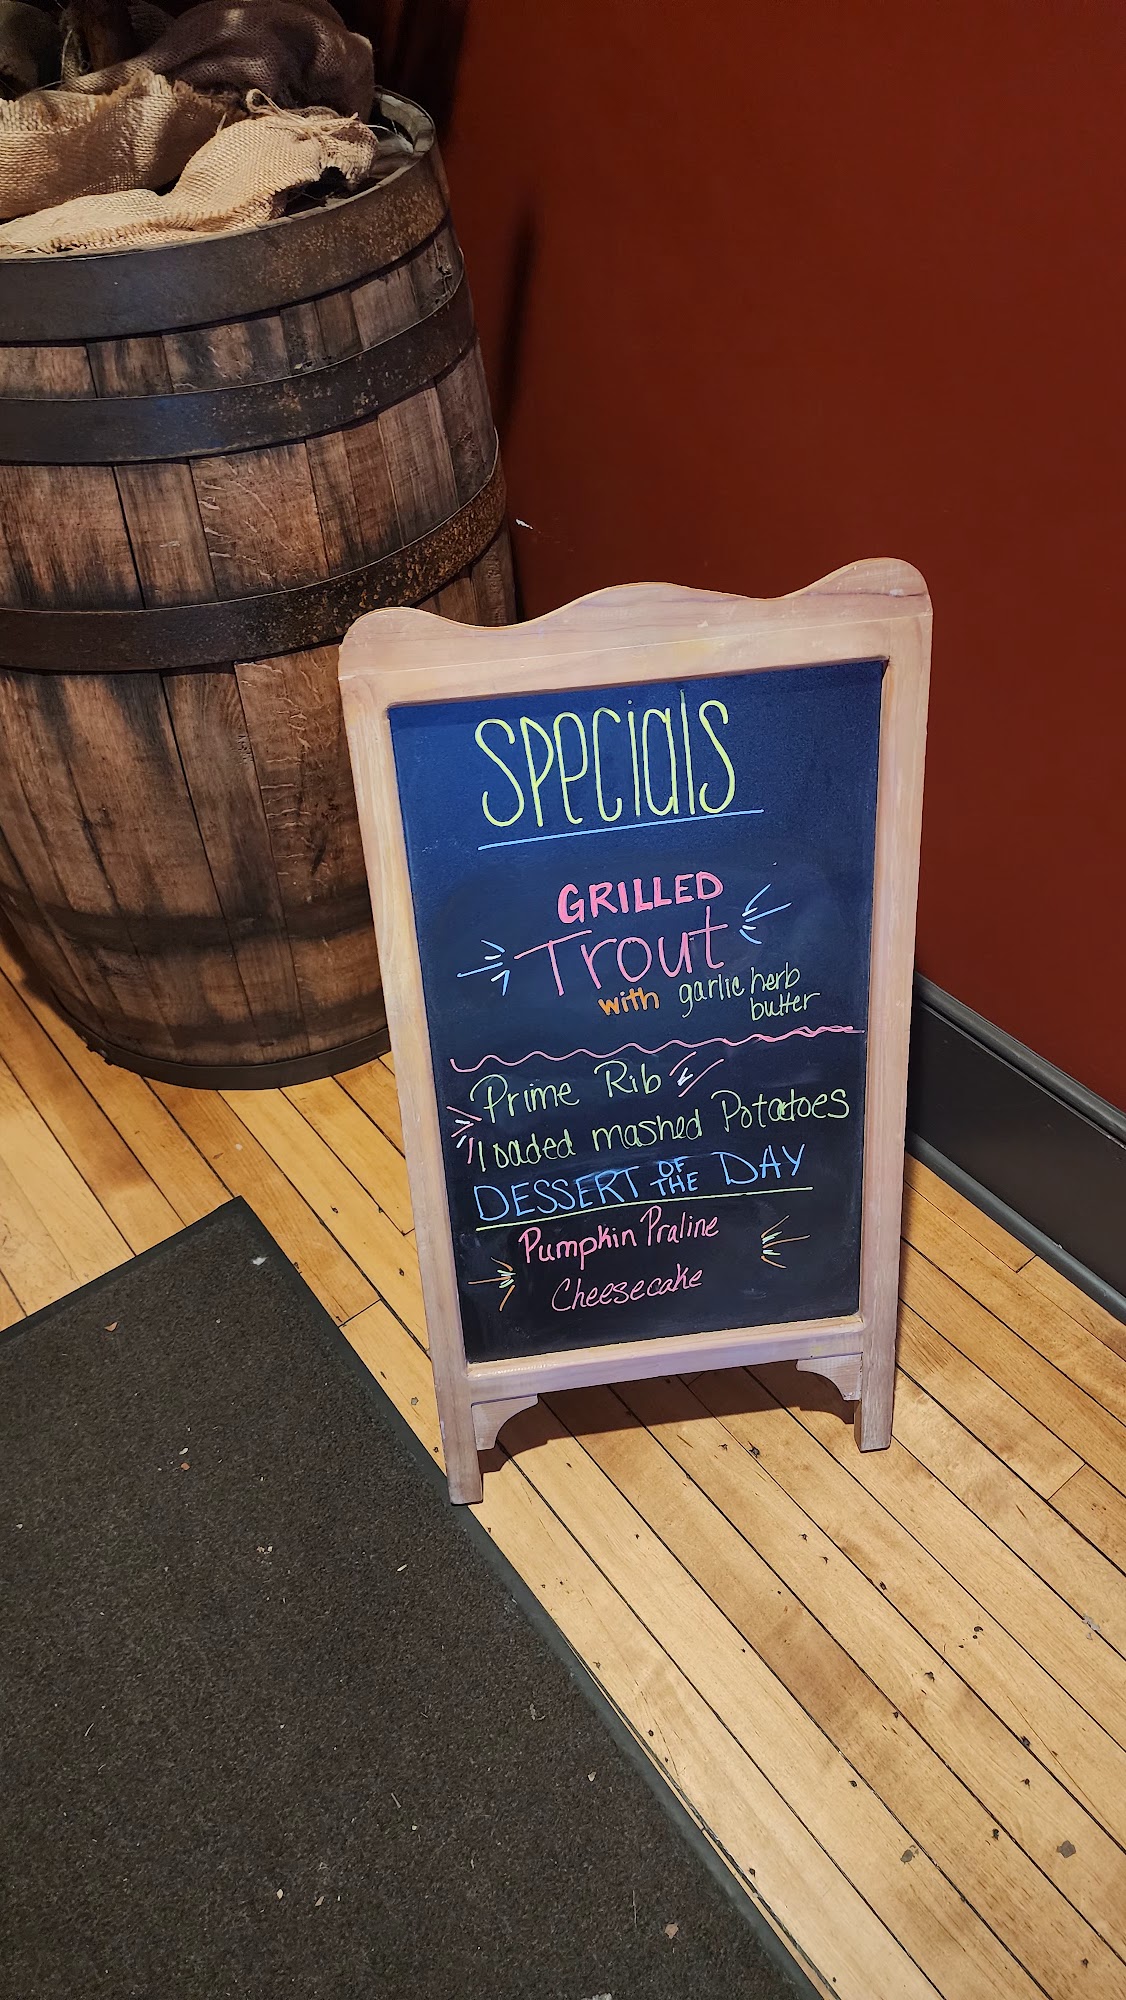 Specials
GRILLED
Trout
with garlic herb
butter
Prime Rib
loaded mashed Potatoes
DESSERT OF THE DAY
Pumpkin Praline
Cheesecake